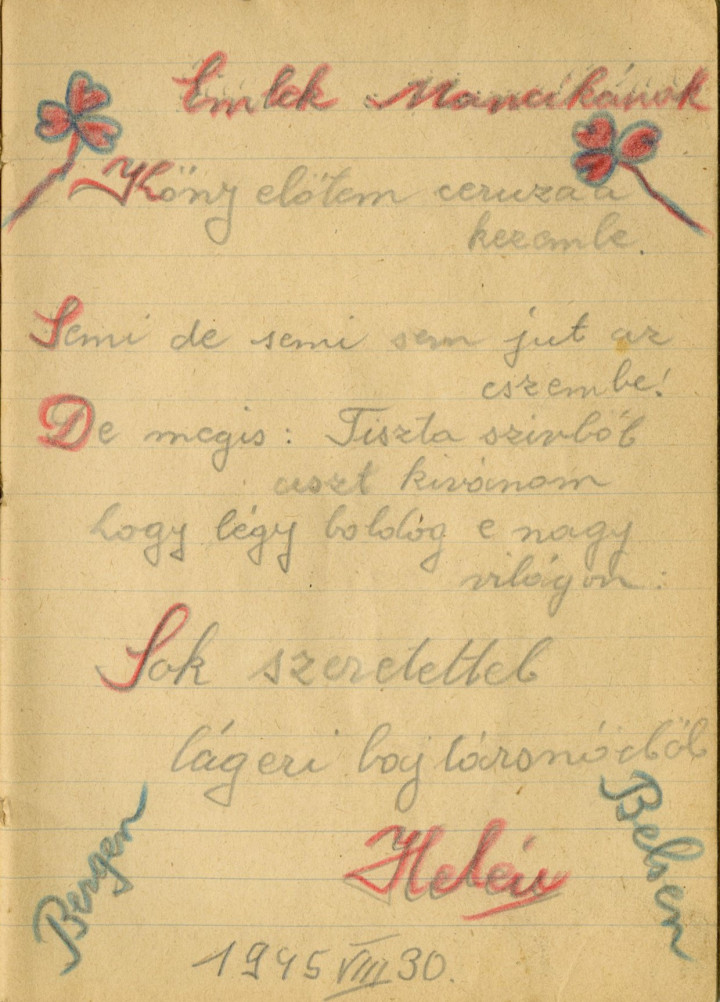 Emlek Mancikának
Köny elötem ceruza a
kezembe.
Semi de semi sem jut az
eszembe!
De megis: Tiszta szivböl
aszt kivánom
hogy légy boldog e nagy
világon:
Sok szeretettel
lágeri bajtársnödtöl
Helén
Bergen
Belsen
1945 VIII 30.